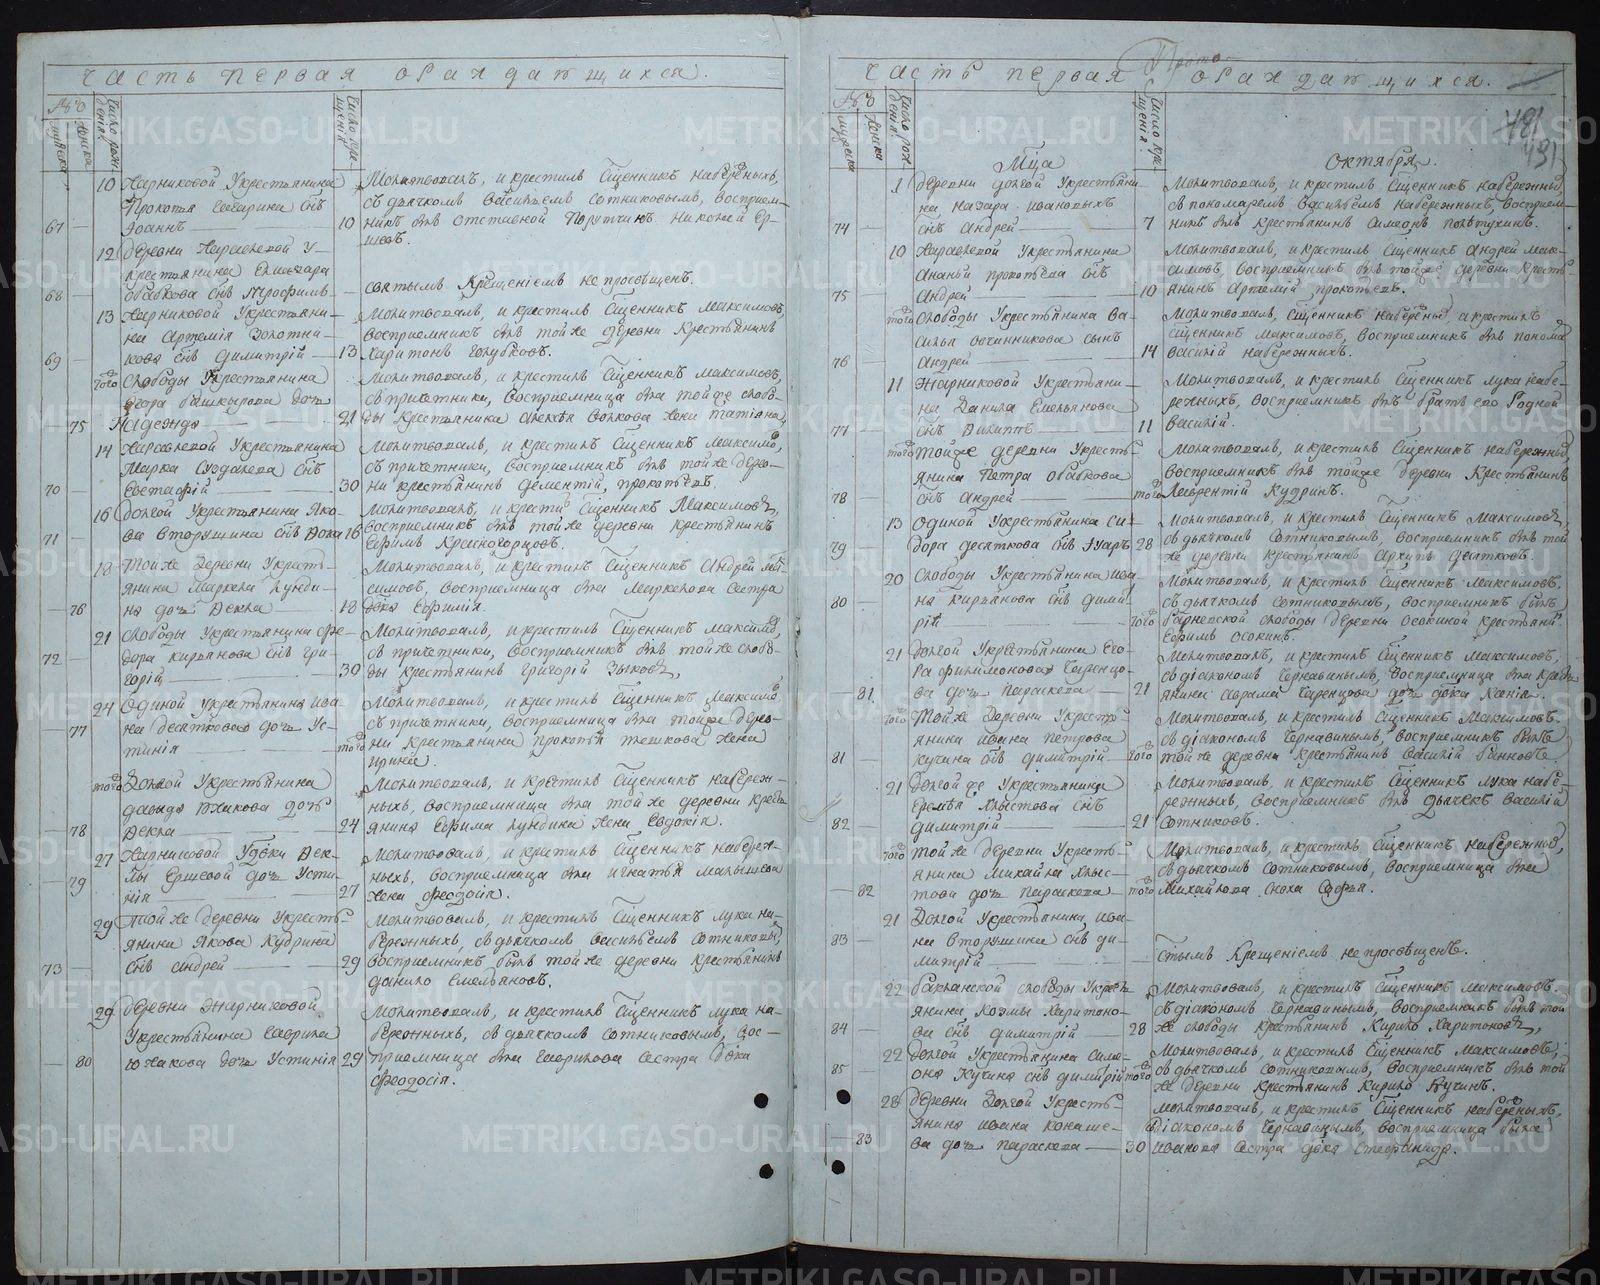 ЧАСТЬ ПЕРВАЯ О РАЖДАЮЩИХСЯ.
№
мужеска
женска
Число рождения
Число крещения
10 Жарниковой Укрестьянина
Прокопья сынъ
67 Иоаннъ 10
Молитвовалъ, и крестилъ Сщенникъ Набережныхъ,
съ дьячкомъ Васильемъ Сотниковымъ, восприем-
никъ былъ отставной Ер-
шовъ.
12 деревни У-
крестьянина Елеазара
68 Обабкова сынъ Трофимъ
святымъ Крещениемъ не просвѣщенъ.
13 Жарниковой Укрестьяни-
на Артемия Золотни-
69 кова сынъ Димитрий 13
Молитвовалъ, и крестилъ Сщенникъ Максимовъ,
восприемникъ былъ той же деревни Крестьянинъ
Харитонъ Голубковъ.
того Слободы Укрестьянина
Егора Башкырова дочь
75 Надежда 21
Молитвовалъ, и крестилъ Сщенникъ Максимовъ,
съ причетники, восприемница была той же слобо-
ды крестьянина Алексея Волкова жена Татиана,
14 Укрестьянина
Марка Суздалева сынъ
70 Евстафий 30
Молитвовалъ, и крестилъ Сщенникъ Максимовъ,
съ причетники, восприемникъ былъ той же дерев-
ни крестьянинъ Дементий Прокопьевъ.
16 Долгой Укрестьянина Яко-
71 ва Вторушина сынъ Фока 16
Молитвовалъ, и крестилъ Сщенникъ Максимовъ,
восприемникъ былъ той же деревни крестьянинъ
Ефимъ Красногорцовъ.
18 Той же деревни Укресть-
янина Маркела Кунди-
76 на дочь Фекла 18
Молитвовалъ, и крестилъ Сщенникъ Андрей Мак-
симовъ, восприемница была Маркелова сестра
дѣвка Ефимия.
21 Слободы Укрестьянина Фе-
72 дора Кирьянова сынъ Гри-
горий 30
Молитвовалъ, и крестилъ Сщенникъ Максимовъ,
съ причетники, восприемникъ былъ той же слобо-
ды крестьянинъ Григорий Зыковъ,
24 Одиной Укрестьянина Ива-
77 на Десяткова дочь Ус-
тиния того
Молитвовалъ, и крестилъ Сщенникъ Максимовъ
съ причетники, восприемница была той же дерев-
ни крестьянина Прокопья Тешкова жена
Ирина.
того Долгой Укрестьянина
Давыда Южакова дочь
78 Фекла 24
Молитвовалъ, и крестилъ Сщенникъ Набереж-
ныхъ, восприемница была той же деревни кресть-
янина Ефима Кундина жена Евдокия.
27 Жарниковой Удѣвки Фек-
79 лы Ершевой дочь Усти-
ния 27
Молитвовалъ, и крестилъ Сщенникъ Набереж-
ныхъ, восприемница была Игнатья Малышева
жена Феодосия.
29 Той же деревни Укресть-
янина Якова Кудрина
73 сынъ Андрей 29
Молитвовалъ, и крестилъ Сщенникъ Лука На-
бережныхъ, съ дьячкомъ Васильемъ Сотниковымъ,
восприемникъ былъ той же деревни крестьянинъ
Данило Емельяновъ.
29 деревни Жарниковой
Укрестьянина Гаврила
80 Южакова дочь Устиния 29
Молитвовалъ, и крестилъ Сщенникъ Лука На-
бережныхъ, съ дьячкомъ Сотниковымъ, вос-
приемница была Гаврилова сестра дѣвка
Феодосия.
ЧАСТЬ ПЕРВАЯ О РАЖДАЮЩИХСЯ.
481
431
№
мужеска
женска
Число рождения
Число крещения
Мца Октября.
1 деревни Долгой Укрестьяни-
на Назара Ивановыхъ
74 сынъ Андрей 7
Молитвовалъ, и крестилъ Сщенникъ Набережныхъ,
съ пономаремъ Васильемъ Набережныхъ, восприем-
никъ былъ крестьянинъ Симеонъ Полетухинъ.
10 Укрестьянина
Ананьи Прокопьева сынъ
75 Андрей 10
Молитвовалъ, и крестилъ Сщенникъ Андрей Мак-
симовъ, восприемникъ былъ той же деревни кресть-
янинъ Артемий Прокопьевъ.
того Слободы Укрестьянина Ва-
силья Овчинникова сынъ
76 Андрей 14
Молитвовалъ, Сщенникъ Набережныхъ, а крестилъ
Сщенникъ Максимовъ, восприемникъ былъ понома
Василий Набережныхъ.
11 Жарниковой Укрестьяни-
на Данила Емельянова
77 сынъ Филиппъ 11
Молитвовалъ, и крестилъ Сщенникъ Лука Набе-
режныхъ, восприемникъ былъ братъ его родной
Василий.
того Той же деревни Укресть-
янина Петра Обабкова
78 сынъ Андрей того
Молитвовалъ, и крестилъ Сщенникъ Набережныхъ,
восприемникъ былъ той же деревни Крестьянинъ
Лаврентий Кудринъ.
13 Одиной Укрестьянина Си-
79 дора Десяткова сынъ Уаръ 28
Молитвовалъ, и крестилъ Сщенникъ Максимовъ,
съ дьячкомъ Сотниковымъ, восприемникъ былъ той
же деревни крестьянинъ Архипъ Десятковъ.
20 Слободы Укрестьянина Ива-
80 на Кирьянова сынъ Дими-
рий того
Молитвовалъ, и крестилъ Сщенникъ Максимовъ,
съ дьячкомъ Сотниковымъ, восприемникъ былъ,
слободы деревни Осокиной крестьянинъ
Ефимъ Осокинъ.
21 Долгой Укрестьянина Его-
ра Филимонова
81 ва дочь Параскева 21
Молитвовалъ, и крестилъ Сщенникъ Максимовъ,
съ диакономъ Чернавинымъ, восприемница была кресть-
янина Аврама дочь дѣвка Ксения.
того Той же деревни Укресть-
янина Ивана Петрова
81 Кучина сынъ Димитрий того
Молитвовалъ, и крестилъ Сщенникъ Максимовъ.
съ диакономъ Чернавинымъ, восприемникъ былъ
той же деревни крестьянинъ Василий
21 Долгой же Укрестьянина
Еремея Хлыстова сынъ
82 Димитрий 21
Молитвовалъ, и крестилъ Сщенникъ Лука Набе-
режныхъ, восприемникъ былъ дьячекъ Василий
Сотниковъ.
того Той же деревни Укресть-
янина Михайла Хлыс-
82 това дочь Параскева того
Молитвовалъ, и крестилъ Сщенникъ Набережныхъ,
съ дьячкомъ Сотниковымъ, восприемница была
Михайлова сноха Софья.
21 Долгой Укрестьянина Ива-
83 на Вторушина сынъ Ди-
митрий
Стымъ Крещениемъ не просвѣщенъ.
22 слободы Укресть-
янина Козмы Харитоно-
84 ва сынъ Димитрий 28
Молитвовалъ, и крестилъ Сщенникъ Максимовъ.
съ диакономъ Чернавинымъ, восприемникъ былъ той
же слободы крестьянинъ Кирило Харитоновъ,
22 Долгой Укрестьянина Симе-
85 она Кучина сынъ Димитрий того
Молитвовалъ, и крестилъ Сщенникъ Максимовъ,
съ дьячкомъ Сотниковымъ, восприемникъ былъ той
же деревни крестьянинъ Кирило Кучинъ.
28 деревни Долгой Укресть-
янина Ивана Конаше-
83 ва дочь Параскева 30
Молитвовалъ, и крестилъ Сщенникъ Набережныхъ,
съ диакономъ Чернавинымъ, восприемница была
Иванова сестра дѣвка Стефанида.
METRIKI.GASO-URAL.RU